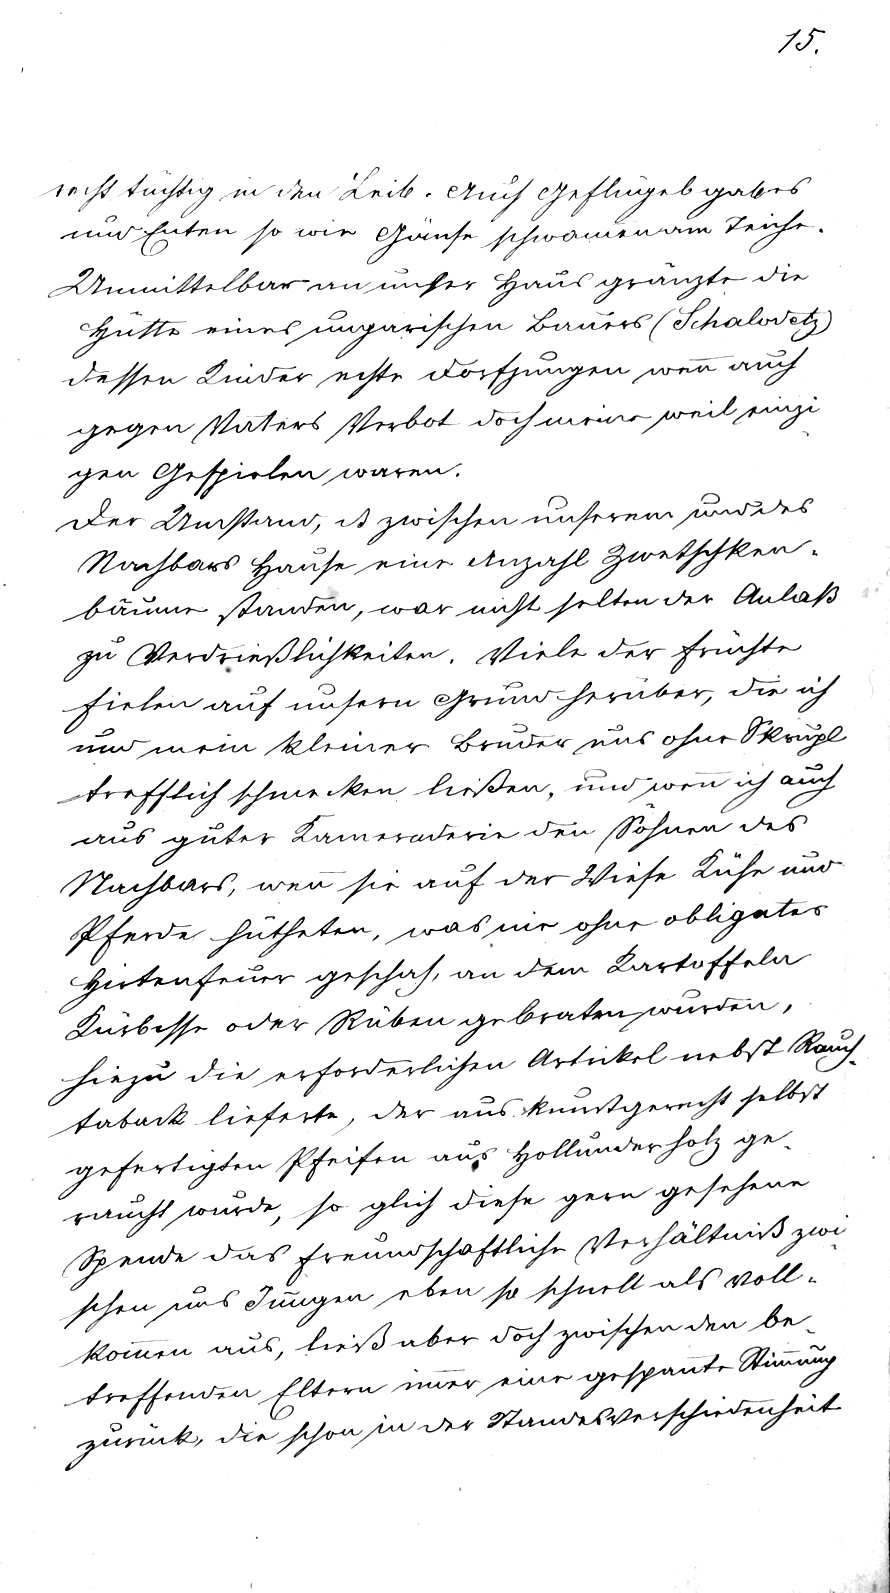 15.
recht tüchtig in den Leib. Auch Geflügel gab es
und Enten so wie Gänse schwam̄en am Teiche.
Unmittelbar an unser Haus gränzte die
Hütte eines ungarischen Bauers (Schalovetz)
dessen Kinder echte Dorfjungen wen̄ auch
gegen Vaters Verbot doch meine weil einzi-
gen Gespielen waren.
Der Umstand, d zwischen unserem und des
Nachbars Hause eine Anzahl Zwetschken-
bäume standen, war nicht selten der Anlaß
zu Verdrießlichkeiten. Viele der Früchte
fielen auf unsern Grund herüber, die ich
und mein kleiner Bruder uns ohne Skrupl
trefflich schmecken ließen, und wen̄ ich auch
aus guter Kameraderie den Söhnen des
Nachbars, wen̄ sie auf der Wiese Kühe und
Pferde hütheten, was nie ohne obligates
Hirtenfeuer geschah, an dem Kartoffeln
Kürbisse oder Rüben gebraten wurden,
hiezu die erforderlichen Artickel nebst Rauch-
taback lieferte, der aus kunstgerecht selbst
gefertigten Pfeifen aus Hollunderholz ge-
raucht wurde, so glich diese gern gesehene
Spende das freundschaftliche Verhältniß zwi-
schen uns Jungen eben so schnell als voll-
kom̄en aus, ließ aber doch zwischen den be-
treffenden Eltern im̄er eine gespan̄te Stim̄ung
zurück, die schon in der Standesverschiedenheit